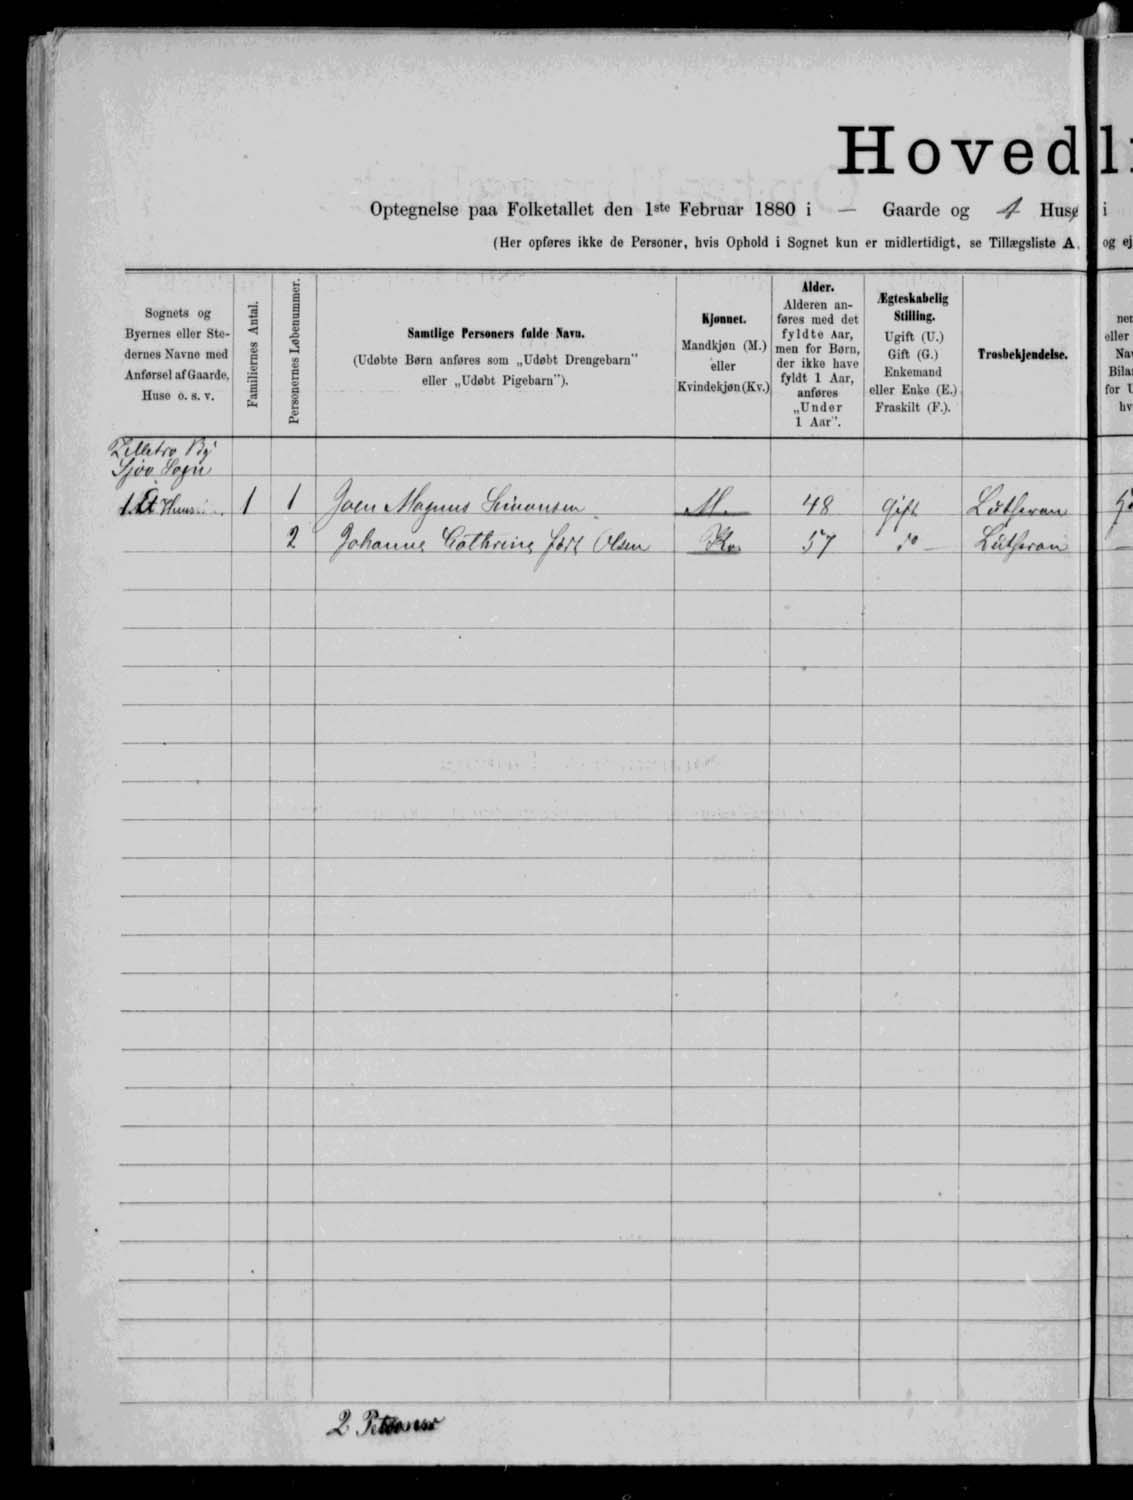 Hovedli
Optegnelse paa Folketallet den 1ste Februar 1880 i — Gaarde og 1 Huse i
(Her opføres ikke de Personer, hvis Ophold i Sognet kun er midlertidigt, se Tillægsliste A, og ej
Sognets og
Byernes eller Ste-
dernes Navne med
Anførsel af Gaarde,
Huse o. s. v.
Familiernes Antal.
Personernes Løbenummer.
Samtlige Personers fulde Navn.
(Udøbte Børn anføres som „Udøbt Drengebarn"
eller „Udøbt Pigebarn").
Kjønnet.
Mandkjøn (M.)
eller
Kvindekjøn (Kv.)
Alder.
Alderen an-
føres med det
fyldte Aar,
men for Børn,
der ikke have
fyldt 1 Aar,
anføres
„Under
1 Aar".
Ægteskabelig
Stilling.
Ugift (U.)
Gift (G.)
Enkemand
eller Enke (E.)
Fraskilt (F.).
Trosbekjendelse.
ner
eller
Nav
Bila
for U
hv
By
Sjov Sogn
1 Et Huus 1 1 Joen Magnus Simonsen M. 48 Gift Lutheran
2 Johanne Cathrine født Olsen Kv. 57 do — Lutheran
2 Personer